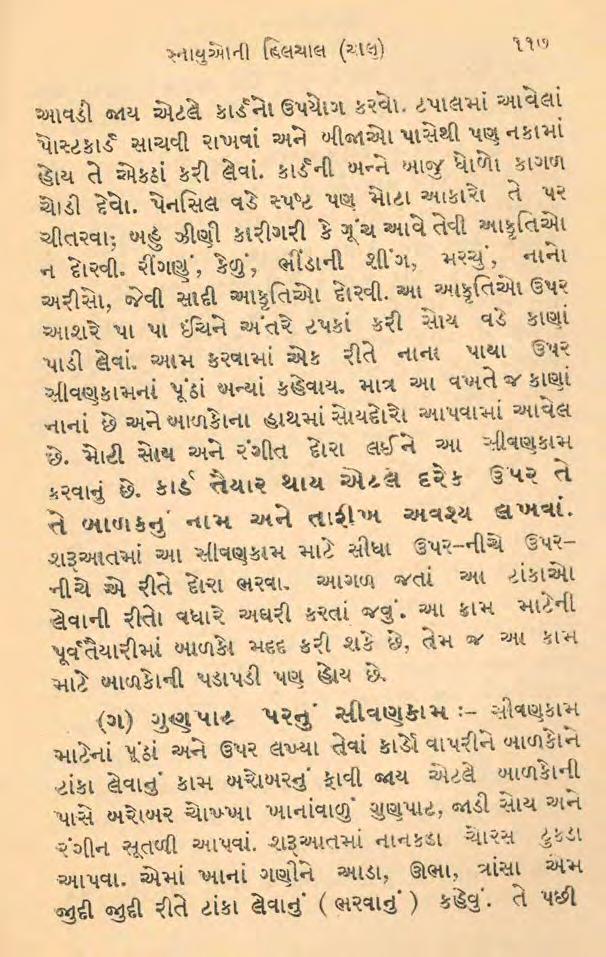 સ્નાયુઓની હિલચાલ (ચાલુ) ૧૧૭
આવડી જાય એટલે કાર્ડનો ઉપયોગ કરવો. ટપાલમાં આવેલાં
પોસ્ટકાર્ડ સાચવી રાખવાં અને બીજાઓ પાસેથી પણ નકામાં
હોય તે એકઠાં કરી લેવાં. કાર્ડની બન્ને બાજુ ધોળો કાગળ
ચોડી દેવો. પેનસિલ વડે સ્પષ્ટ પણ મોટા આકારો તે પર
ચીતરવા; બહુ ઝીણી કારીગરી કે ગૂંચ આવે તેવી આકૃતિઓ
ન દોરવી. રીંગણું, કેળું, ભીંડાની શીંગ, મરચું, નાનો
અરીસો, જેવી સાદી આકૃતિઓ દોરવી. આ આકૃતિઓ ઉપર
આશરે પા પા ઈંચિને અંતરે ટપકાં કરી સોય વડે કાણાં
પાડી લેવાં. આમ કરવામાં એક રીતે નાના પાયા ઉપર
સીવણકામનાં પૂંઠાં બન્યાં કહેવાય. માત્ર આ વખતે જ કાણાં
નાનાં છે અને બાળકોના હાથમાં સોયદોરો આપવામાં આવેલ
છે. મોટી સોય અને રંગીત દોરા લઈને આ સીવણકામ
કરવાનું છે. કાર્ડ તૈયાર થાય એટલે દરેક ઉપર તે
તે બાળકનું નામ અને તારીખ અવશ્ય લખવાં.
શરૂઆતમાં આ સીવણકામ માટે સીધા ઉપર–નીચે ઉપર–
નીચે એ રીતે દોરા ભરવા. આગળ જતાં આ ટાંકાઓ
લેવાની રીતો વધારે અઘરી કરતાં જવું. આ કામ માટેની
પૂર્વતૈયારીમાં બાળકો મદદ કરી શકે છે, તેમ જ આ કામ
માટે બાળકોની પડાપડી પણ હોય છે.
(ગ) ગુણપાટ પરનું સીવણકામ :– સીવણકામ
માટેનાં પૂંઠાં અને ઉપર લખ્યા તેવાં કાર્ડો વાપરીને બાળકોને
ટાંકા લેવાનું કામ બરોબરનું ફાવી જાય એટલે બાળકોની
પાસે બરોબર ચોખ્ખા ખાનાંવાળું ગુણપાટ, જાડી સોય અને
રંગીન સૂતળી આપવાં. શરૂઆતમાં નાનકડા ચોરસ ટુકડા
આપવા. એમાં ખાનાં ગણીને આડા, ઊભા, ત્રાંસા એમ
જુદી જુદી રીતે ટાંકા લેવાનું ( ભરવાનું ) કહેવું. તે પછી